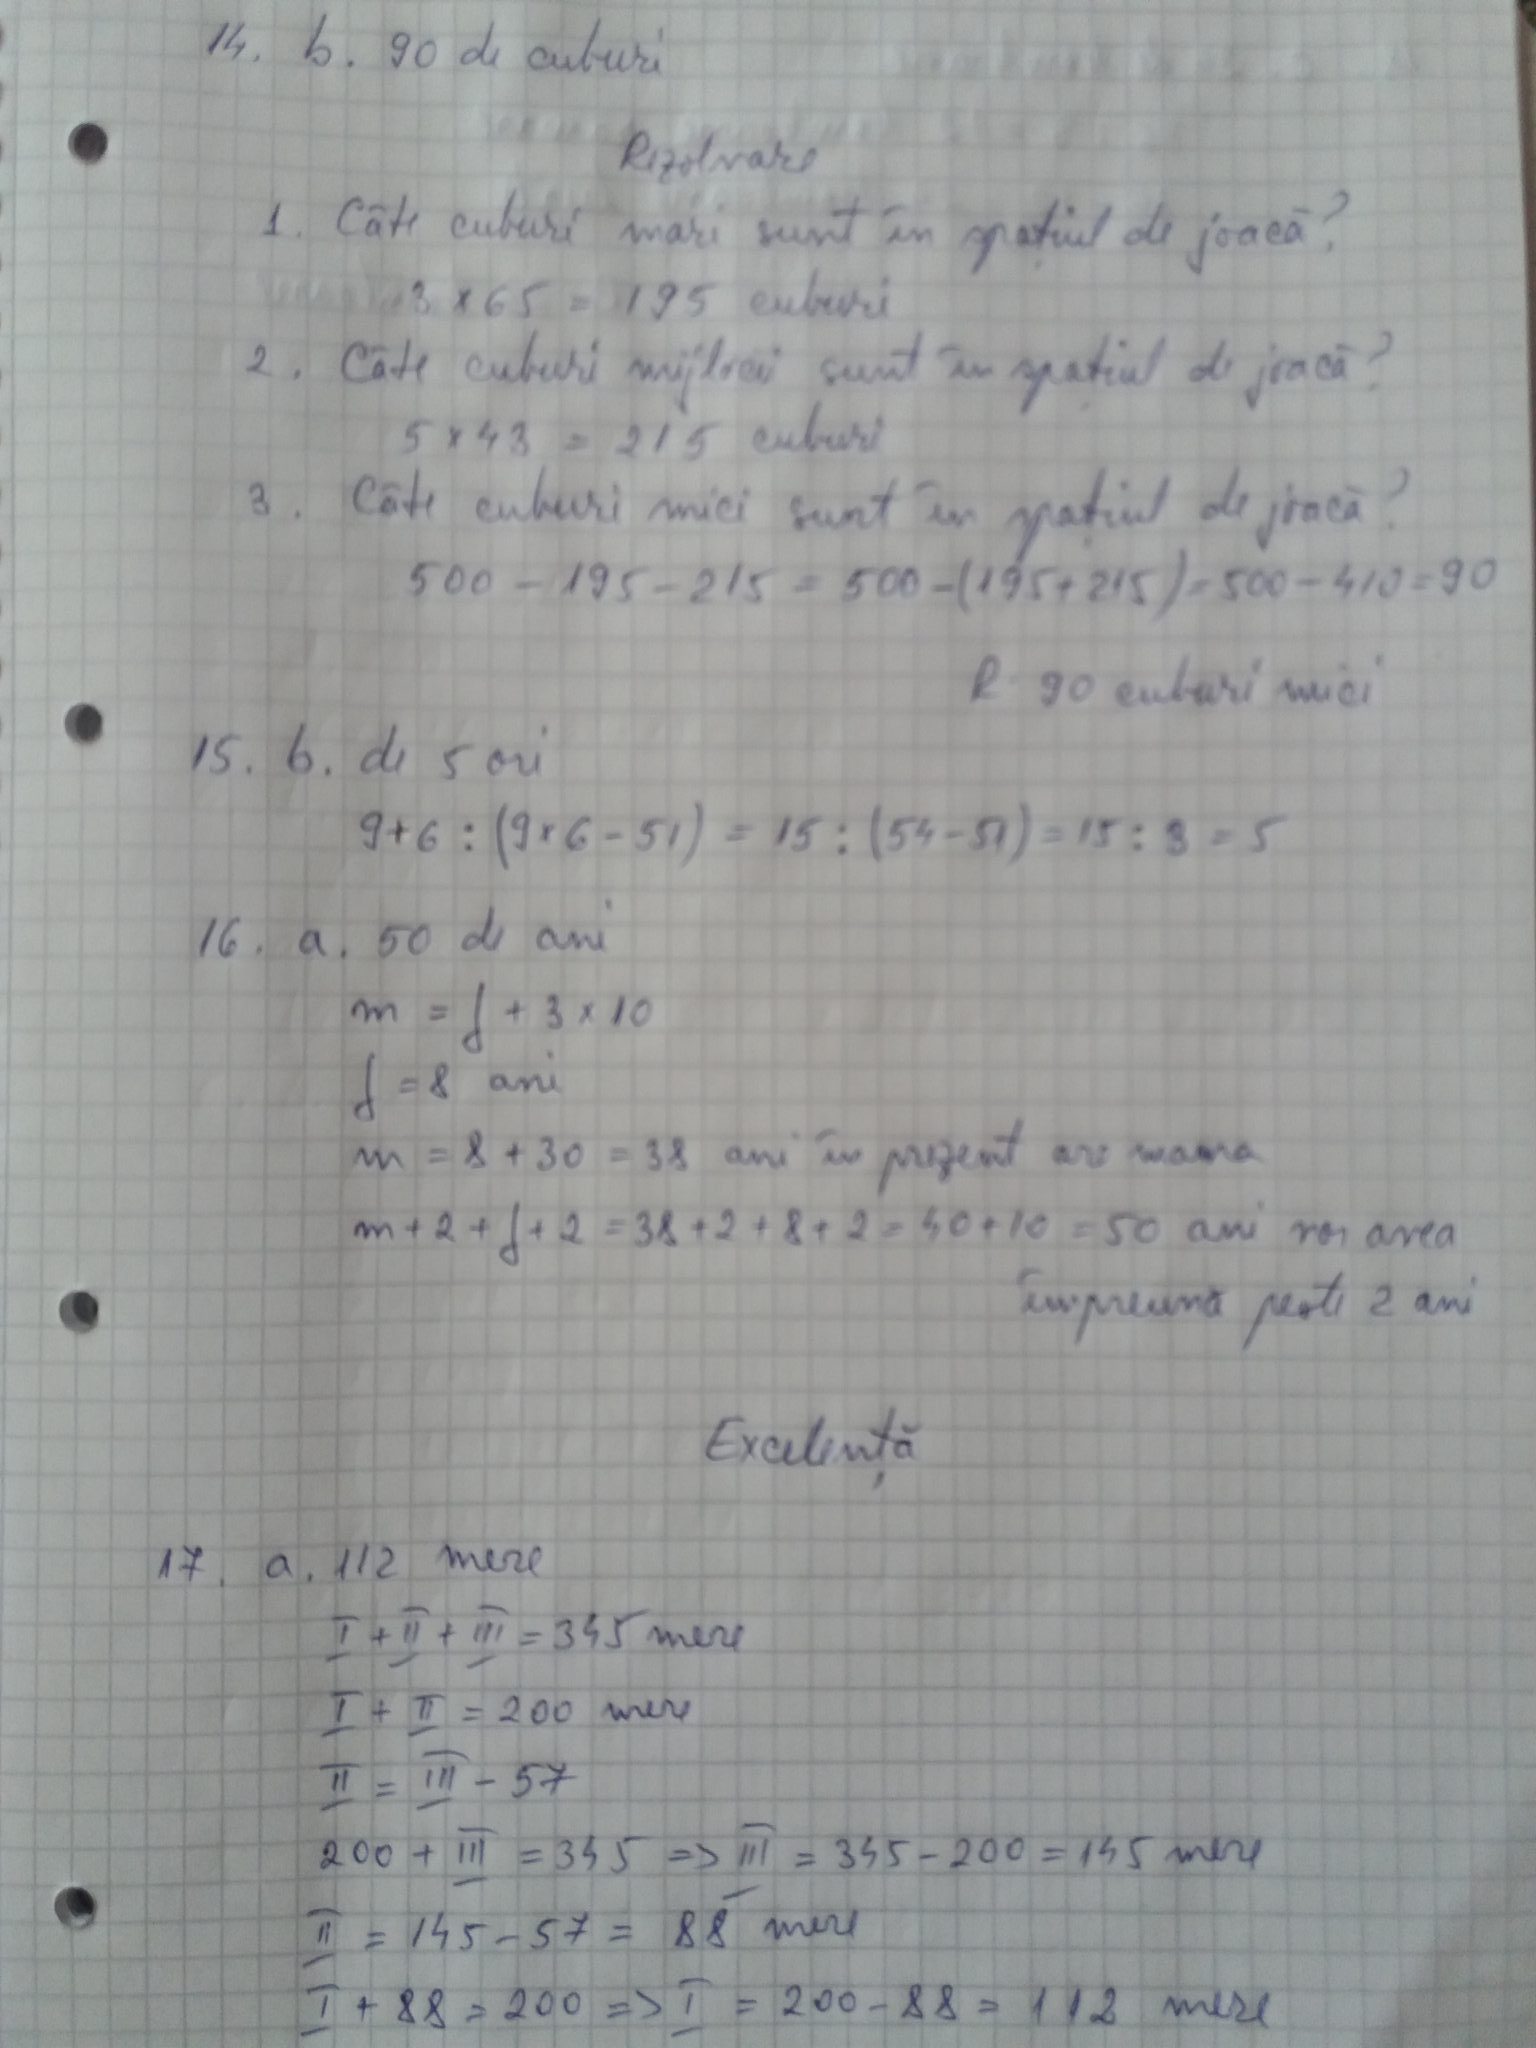 14. b. 90 de cuburi
Rezolvare
1. Câte cuburi mari sunt în spațiul de joacă?
3 × 65 = 195 cuburi
2. Câte cuburi mijlocii sunt în spațiul de joacă?
5 × 43 = 215 cuburi
3. Câte cuburi mici sunt în spațiul de joacă?
500 - 195 - 215 = 500 - (195 + 215) = 500 - 410 = 90
R 90 cuburi mici
15. b. de 5 ori
9 + 6 : (9 × 6 - 51) = 15 : (54 - 51) = 15 : 3 = 5
16. a. 50 de ani
m = f + 3 × 10
f = 8 ani
m = 8 + 30 = 38 ani în prezent are mama
m + 2 + f + 2 = 38 + 2 + 8 + 2 = 40 + 10 = 50 ani vor avea
împreună peste 2 ani
Excelență
17. a. 112 mere
I + II + III = 345 mere
I + II = 200 mere
II = III - 57
200 + III = 345 => III = 345 - 200 = 145 mere
II = 145 - 57 = 88 mere
I + 88 = 200 => I = 200 - 88 = 112 mere